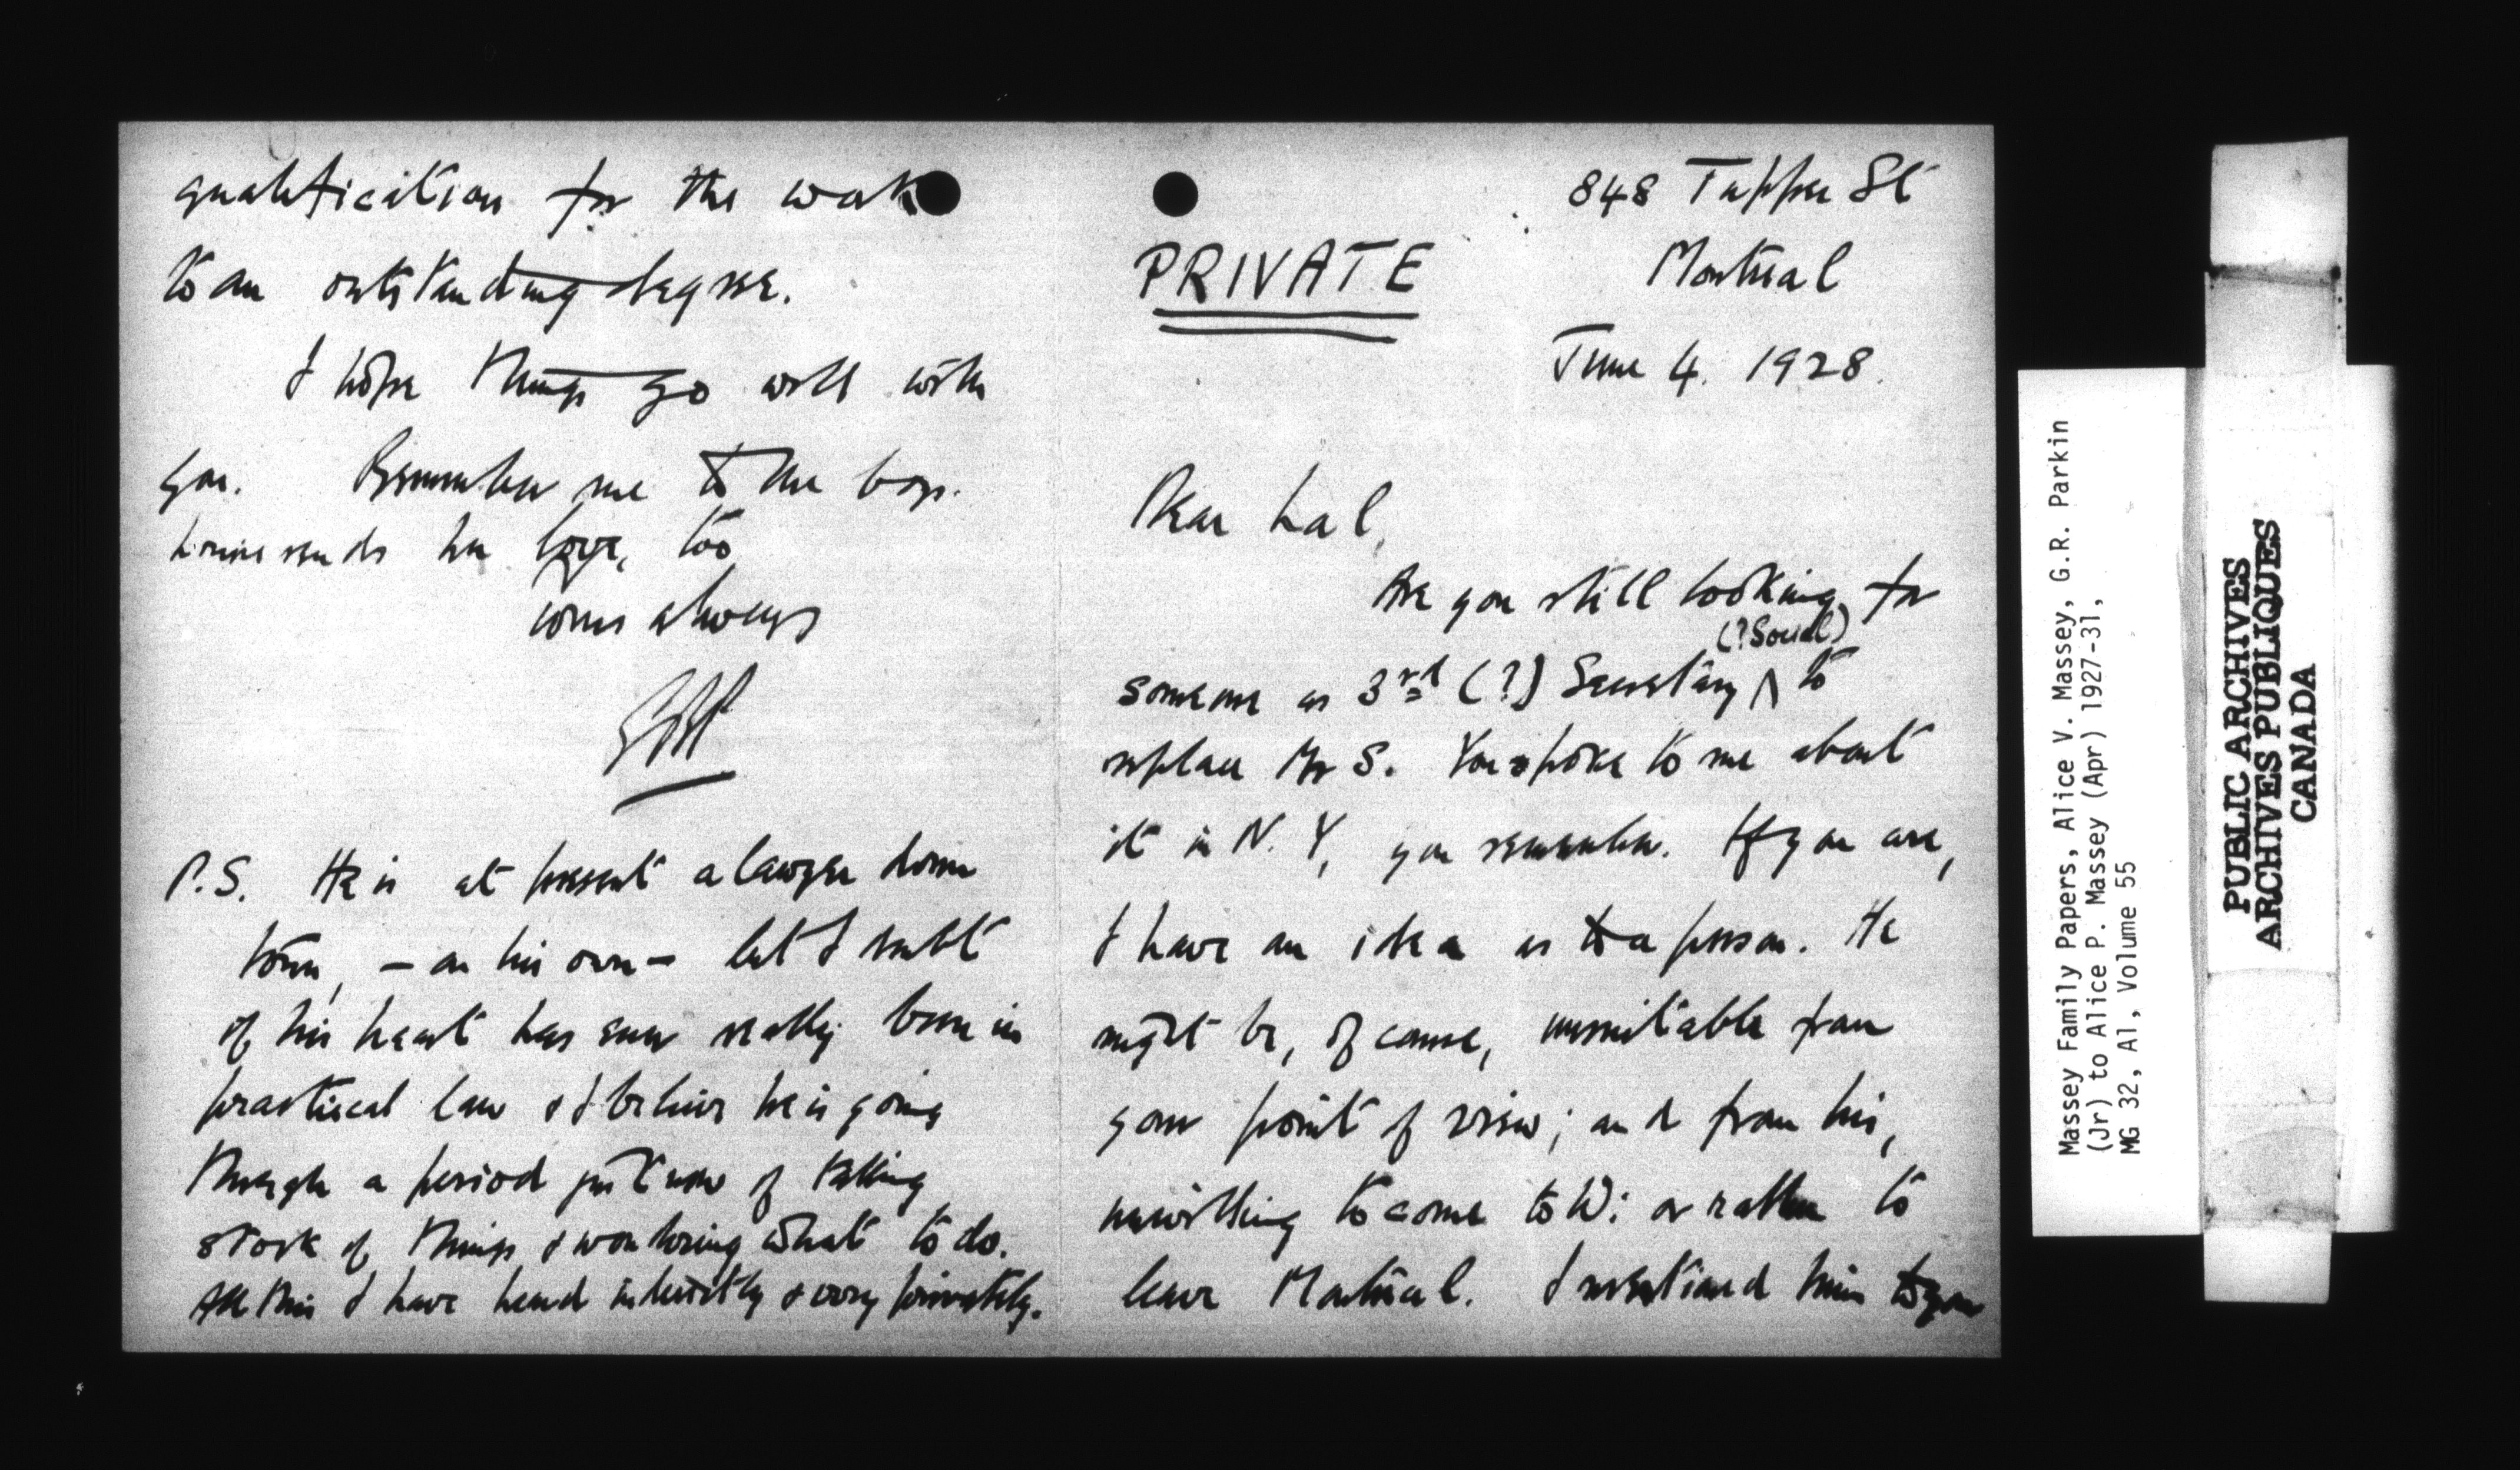 qualification for the work
to an outstanding degree.
I hope things go well with
you. Remember me to the boys.
sends her love, too
Yours always
P.S. He is at present a lawyer down
town, – on his own – but I doubt
if his heart has ever really been in
practical law & I believe he is going
through a period just now of taking
stock of things & wondering what to do.
All this I have heard indirectly & very privately.
848 Tupper St
Montreal
PRIVATE
June 4. 1928.
Dear Lal,
Are you still looking for
(? Social)
someone as 3rd (?) Secretary ∧ to
replace Mr S. You spoke to me about
it in N.Y, you remember. If you are,
I have an idea as to a person. He
might be, of course, unsuitable from
your point of view; and from his,
unwilling to come to W: or rather to
leave Montreal. I mentioned him to you
Massey Family Papers, Alice V. Massey, G.R. Parkin
(Jr) to Alice P. Massey (Apr) 1927-31,
MG 32, A1, Volume 55
PUBLIC ARCHIVES
ARCHIVES PUBLIQUES
CANADA